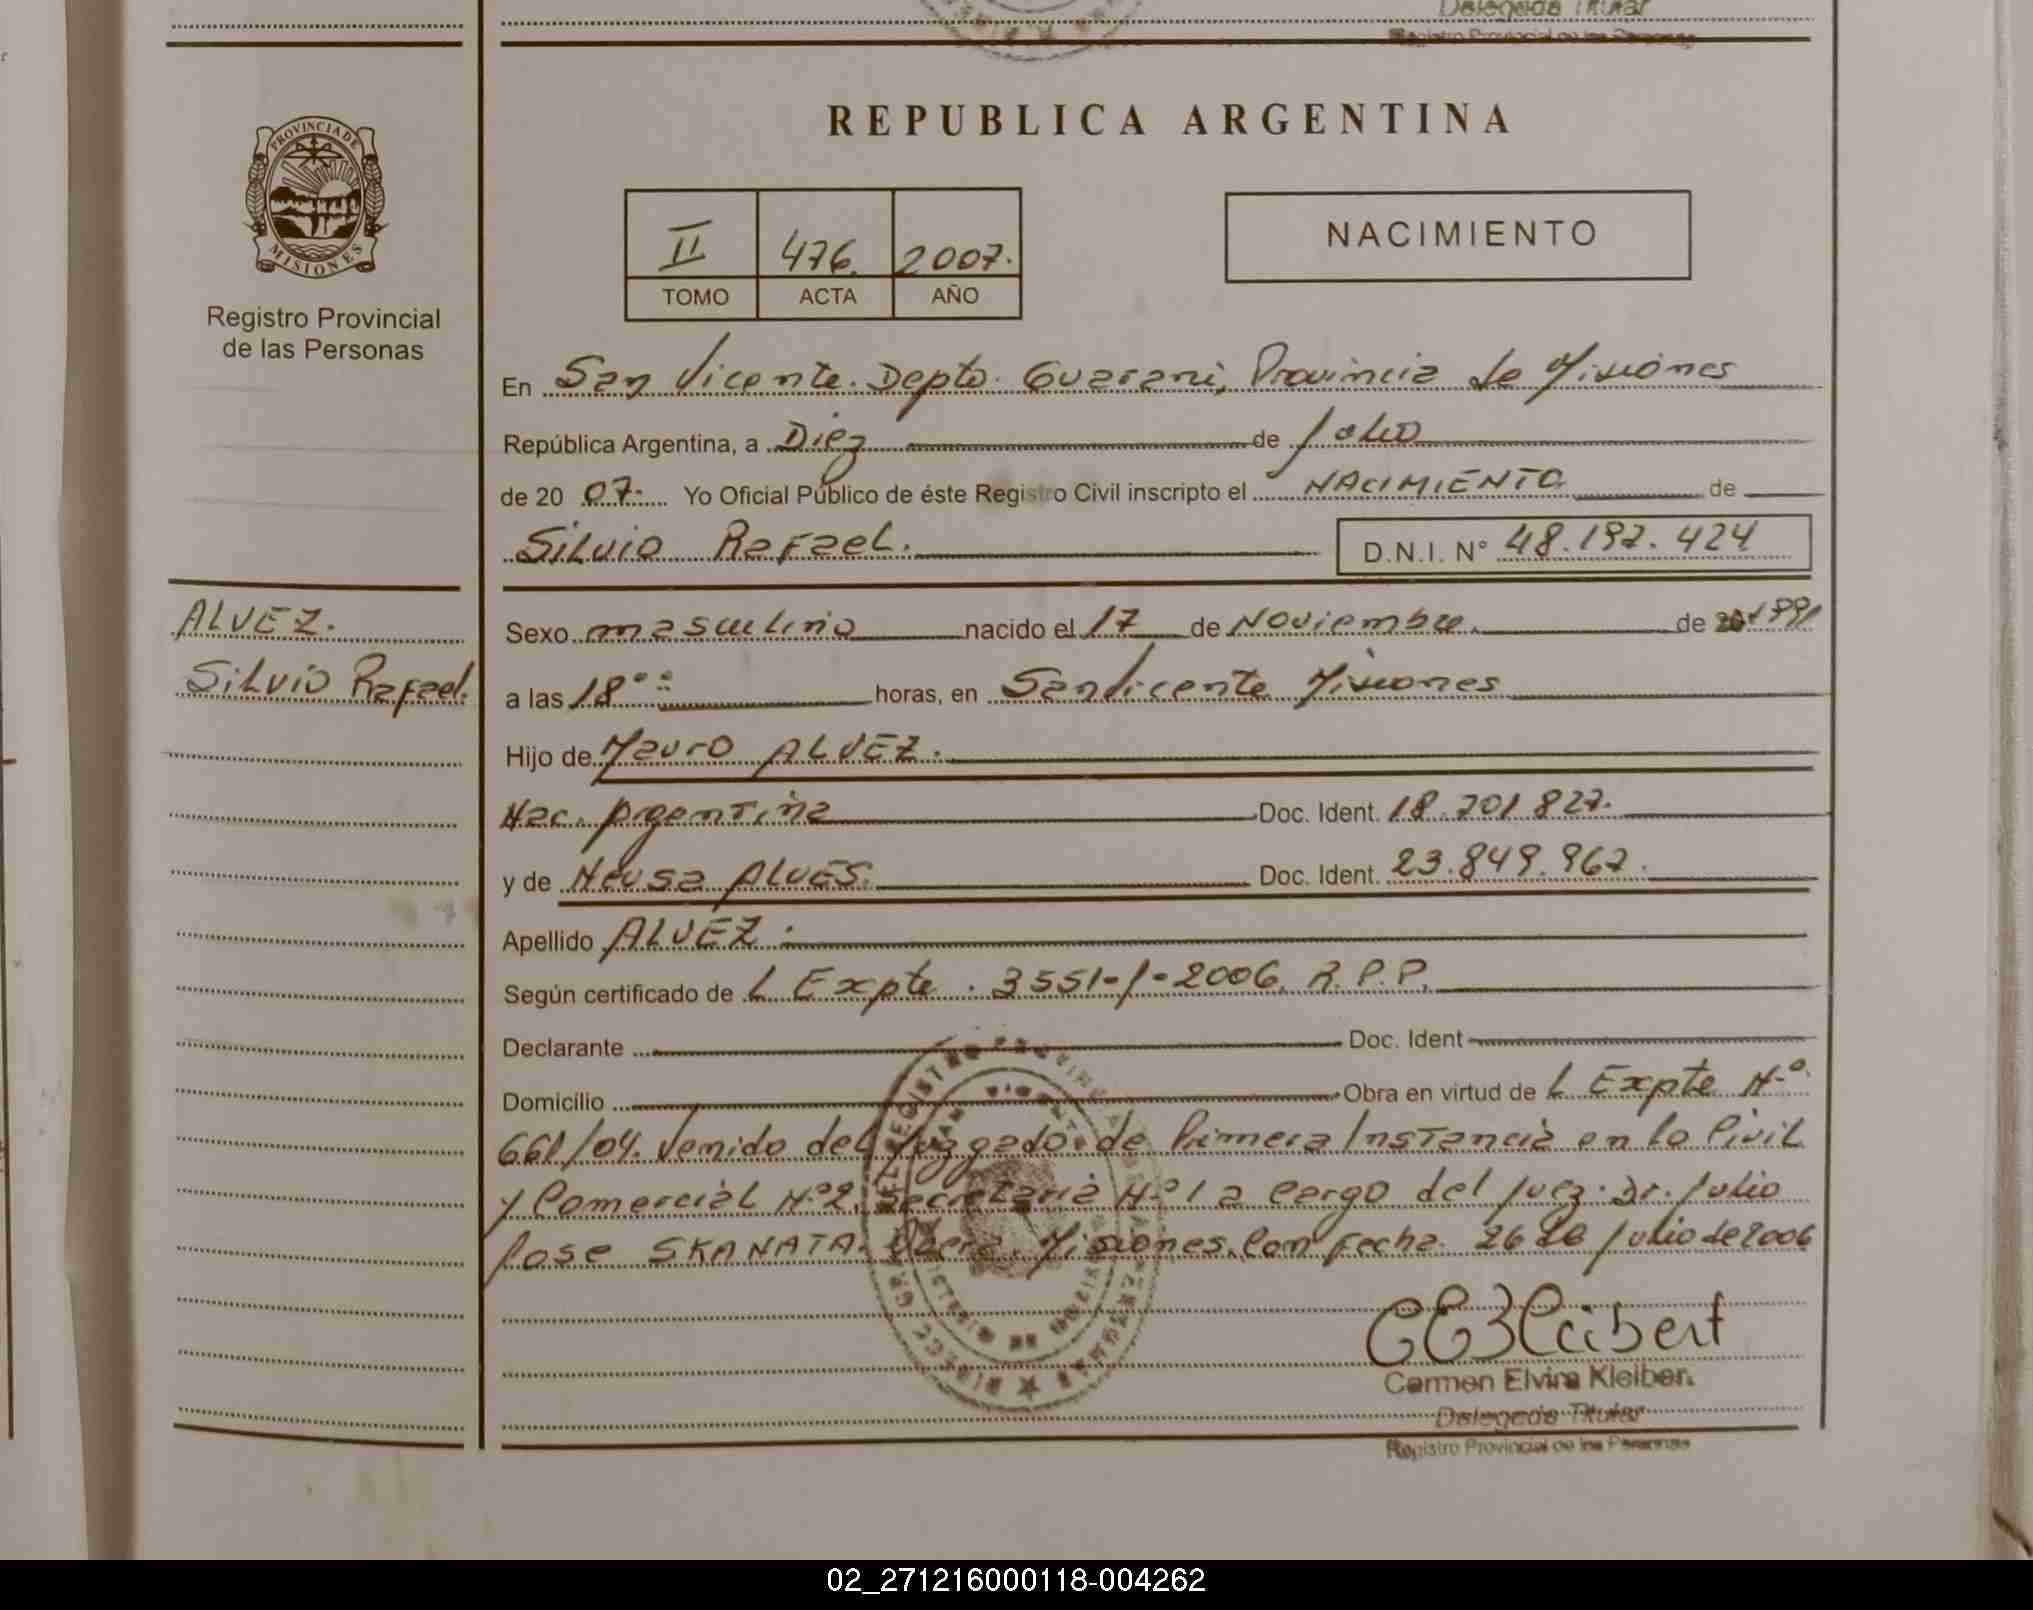 Delegada Titular
Registro Provincial de las Personas
PROVINCIA DE
MISIONES
Registro Provincial
de las Personas
REPUBLICA ARGENTINA
II 476. 2007.
TOMO ACTA AÑO
NACIMIENTO
En San Vicente. Depto. Guarani, Provincia de Misiones
República Argentina, a Diez de Julio
de 20 07. Yo Oficial Público de éste Registro Civil inscripto el NACIMIENTO de
Silvio Rafael. D.N.I. N° 48.197.424
ALVEZ.
Silvio Rafael.
Sexo masculino nacido el 17 de Noviembre. de 1991
a las 18°° horas, en San Vicente Misiones
Hijo de Mauro ALVEZ.
Nac. Argentina Doc. Ident. 18.701.827.
y de Neusa ALVES. Doc. Ident. 23.849.967.
Apellido ALVEZ.
Según certificado de L Expte. 3551-1-2006. R.P.P.
Declarante Doc. Ident
Domicilio Obra en virtud de L Expte N°
661/04. Venido del Juzgado de Primera Instancia en lo Civil
y Comercial N°2, Secretaria N°1 a cargo del Juez. Dr. Julio
Jose SKANATA. Obera. Misiones. Con fecha 26 de Julio de 2006
CEKleibert
Carmen Elvira Kleibert
Delegada Titular
Registro Provincial de las Personas
02_271216000118-004262